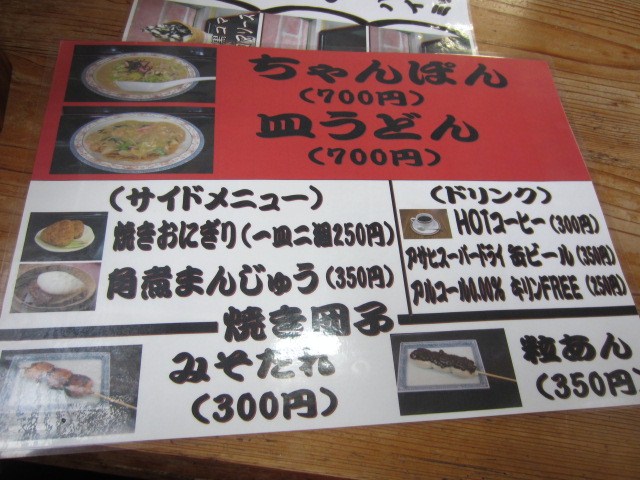 ちゃんぽん
(700円)
皿うどん
(700円)
(サイドメニュー)
焼きおにぎり(一皿二個250円)
角煮まんじゅう(350円)
(ドリンク)
HOTコーヒー(300円)
アサヒスーパードライ 缶ビール(350円)
アルコール0.00% キリンFREE(250円)
焼き団子
みそだれ
(300円)
粒あん
(350円)